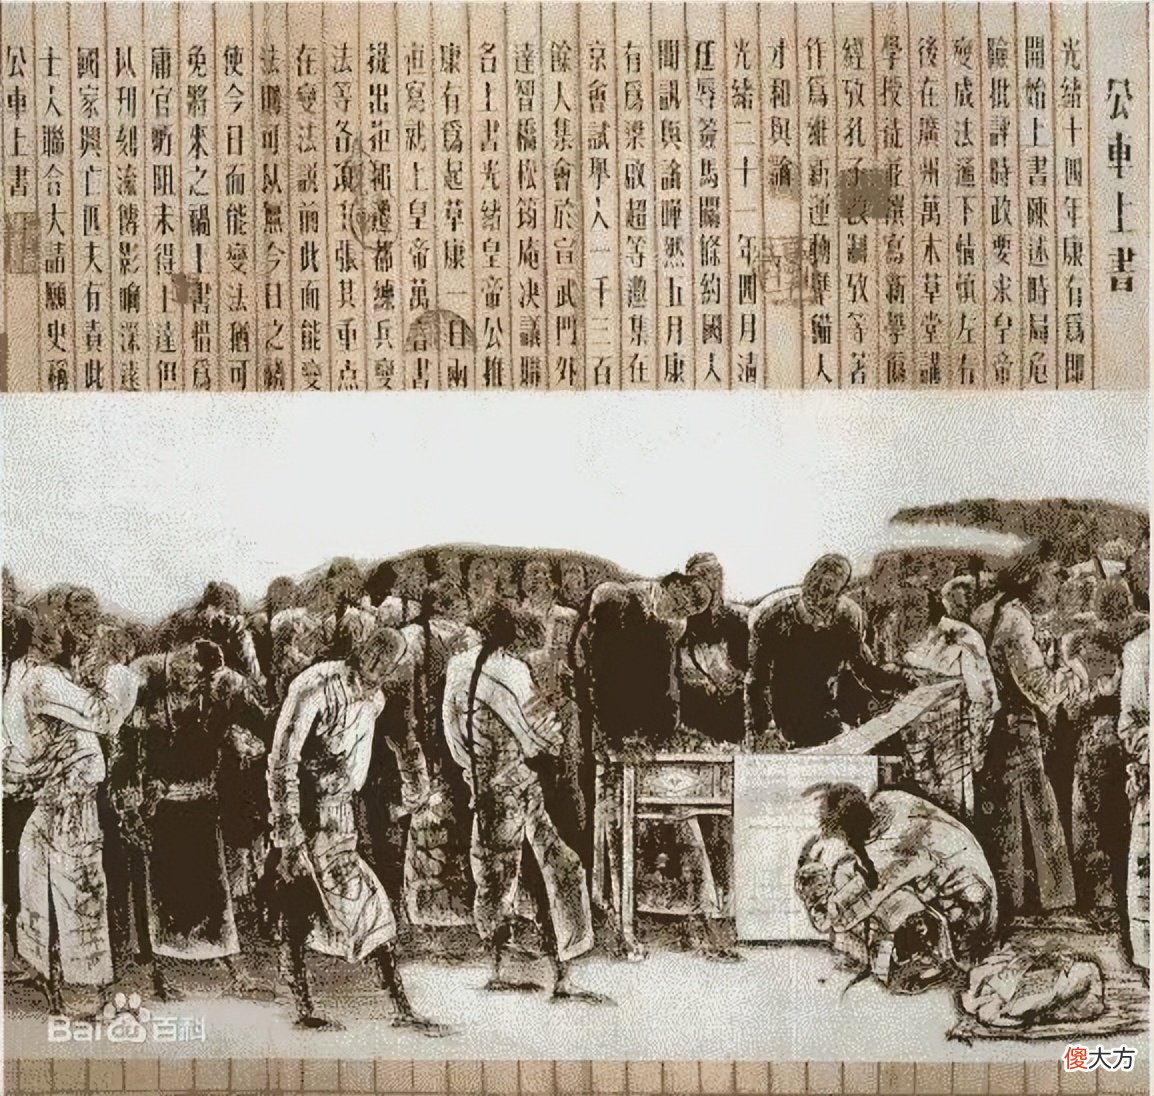 公車上書
光緒十四年康有爲即
開始上書陳述時局危
險批評時政要求皇帝
變成法通下情慎左右
後在廣州萬木草堂講
學授徒並撰寫新學僞
經攷孔子改制攷等著
作爲維新運動人
才和輿論
光緒二十一年四月滿
廷辱簽馬關條約國人
聞訊輿論嘩然五月康
有爲梁啟超等邀集在
京會試舉人一千三百
餘人集會於宣武門外
達智橋松筠庵决議聯
名上書光緒皇帝公推
康有爲起草康一日兩
夜寫就上皇帝萬言書
提出拒和遷都練兵變
法等各項主張其重点
在變法説前此而能變
法則可以無今日之禍
使今日而能變法猶可
免將來之禍上書惜爲
庸官所阻未得上達但
以刊刻流傳影响深遠
國家興亡匹夫有責此
士人聯合大請願史稱
公車上書
Bai百科
傻大方